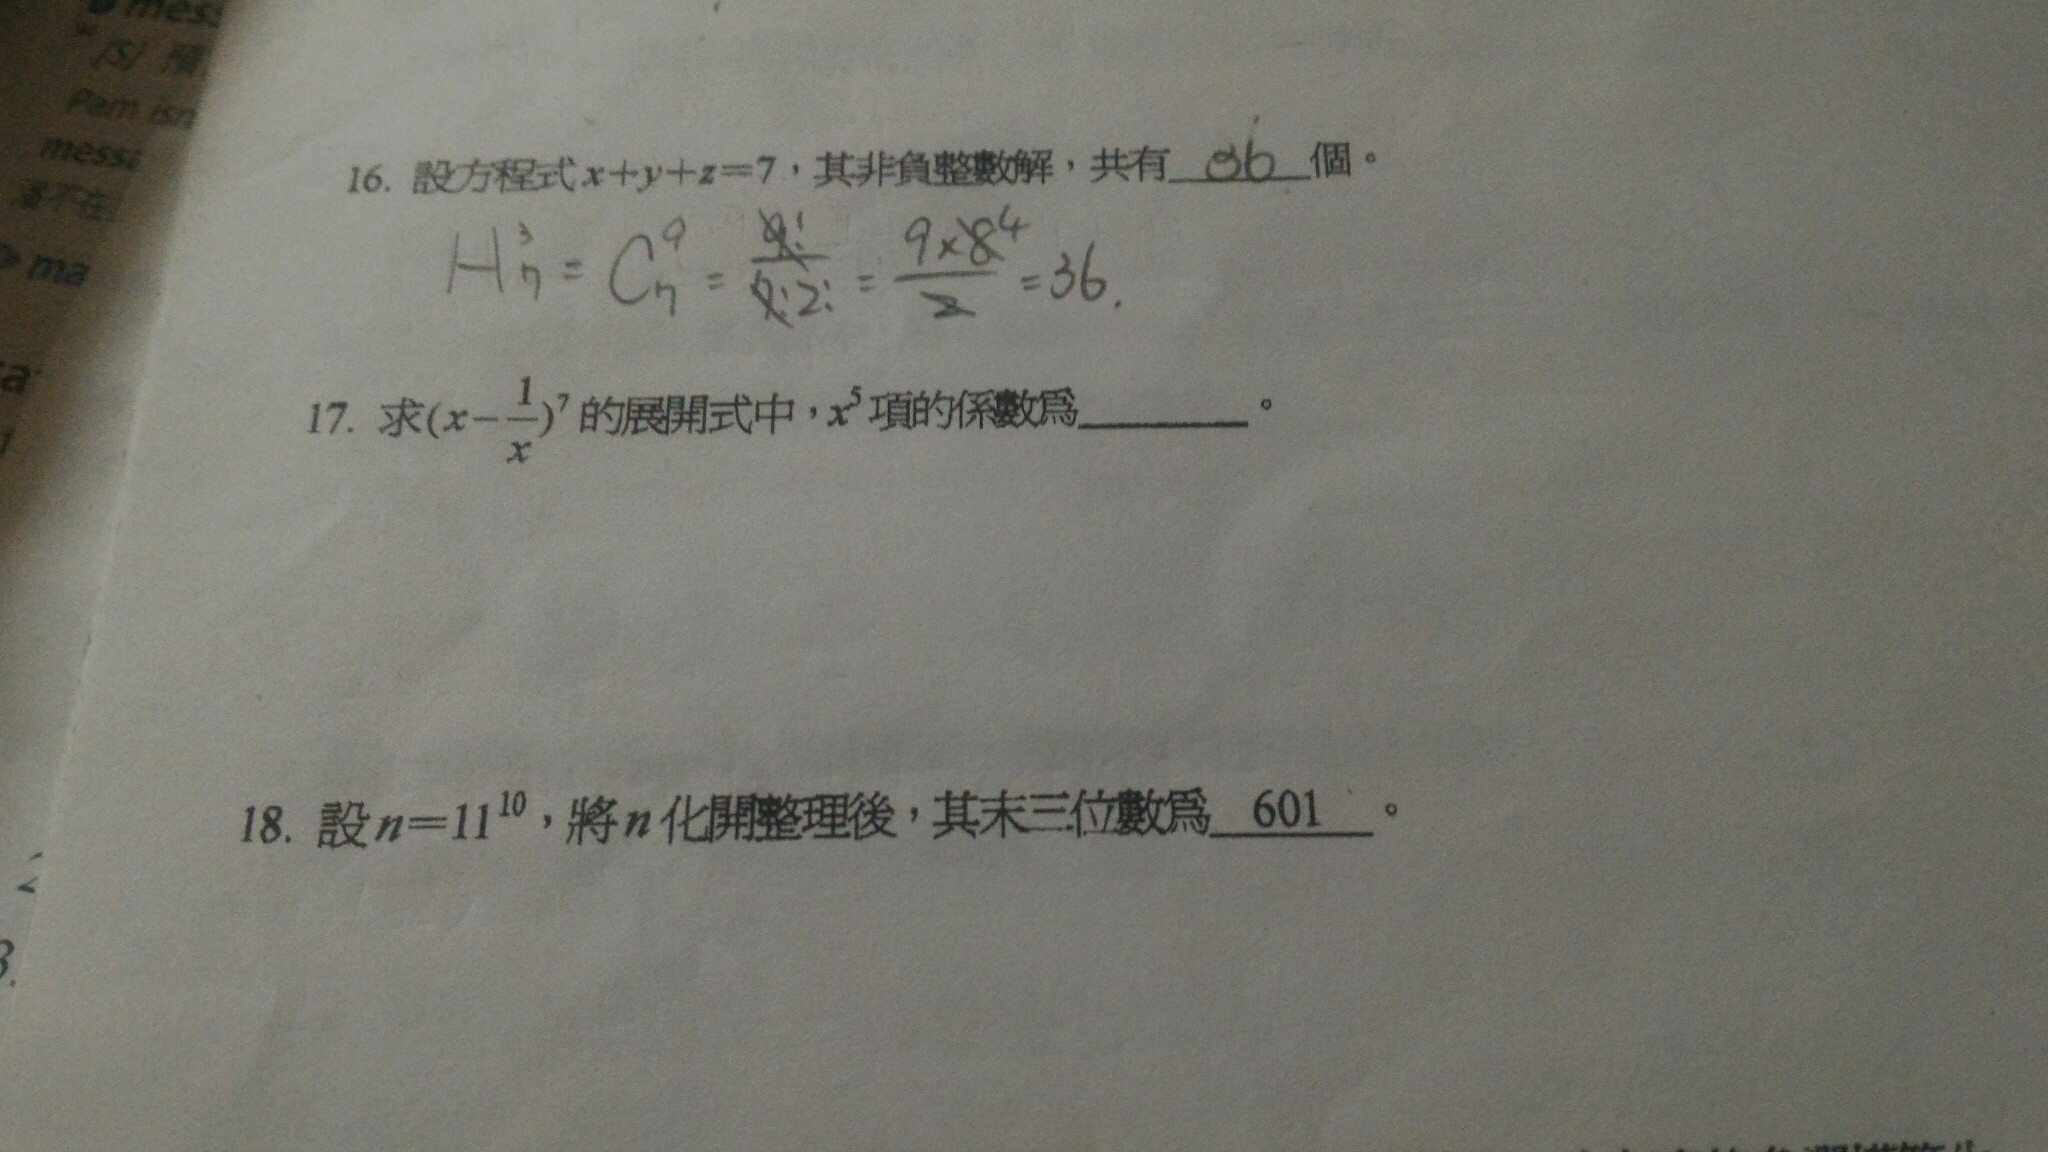 mess
Pam isn
messa
潘不在
ma
16. 設方程式x+y+z=7，其非負整數解，共有 36 個。
H³₇ = C⁹₇ = 9!/7!2! = 9×8⁴/2 = 36.
17. 求(x-1/x)⁷的展開式中，x⁵項的係數為______。
18. 設n=11¹⁰，將n化開整理後，其末三位數為 601 。